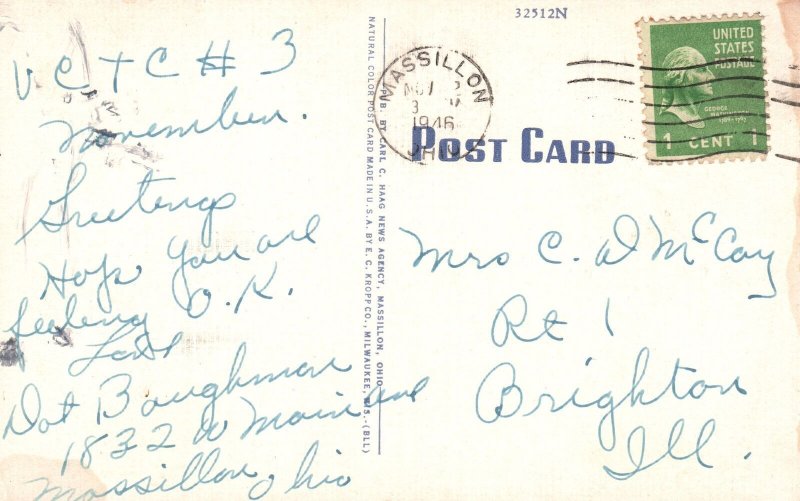 32512N
V C T C # 3
November.
Greetings
Hope you are
feeling O.K.
Love
Dot Baughman
1832 W Main Ave
Massillon, Ohio
NATURAL COLOR POST CARD MADE IN U.S.A. BY E. C. KROPP CO., MILWAUKEE, WIS.-(BLL)
PUB. BY CARL C. HAAG NEWS AGENCY, MASSILLON, OHIO
MASSILLON
NOV
3
1946
OHIO
POST CARD
UNITED
STATES
POSTAGE
GEORGE
WASHINGTON
1 CENT 1
Mrs C. D McCoy
Rt 1
Brighton
Ill.